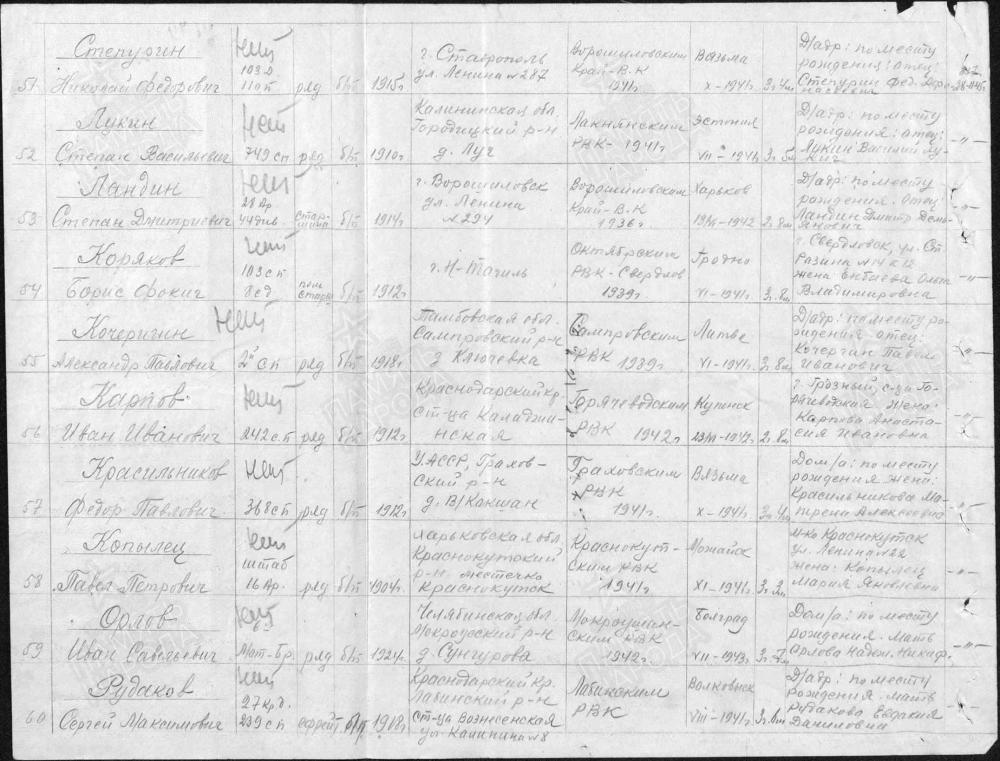 Степурин
Николай Федорович
51
нет
103 д
110 п
ряд
б/п
1915г
г. Ставрополь
ул. Ленина № 287
Ворошиловским
Край-В.К
1941г
Вязьма
X-1941г
3г. 4м
Д/адр: по месту
рождения: отец:
Степурин Фед.
Лукин
52
Степан Васильевич
нет
749 сп
ряд
б/п
1910г
Калининская обл.
Городицкий р-н
д. Луч
Лакнянским
РВК - 1941г
Эстония
VII - 1941г
Д/адр: по месту
рождения: отец:
Лукин Василий Лу-
кич
-"-
Ландин
53
Степан Дмитриевич
нет
28 Ар
44 див
стар-
шина
б/п
1914г
г. Ворошиловск
ул. Ленина
№ 294
Ворошиловским
Край-В.К
1936г
Харьков
1942
2г. 8м
Д/адр: по месту
рождения. Отец:
Ландин Дмитр Демь-
янович
-"-
Коряков
54
Борис Фокич
нет
103 сп
пом
б/п
1912г
г. Н-Тагиль
Октябрским
РВК-Свердлов
1939г.
Гродно
VI-1941г
3г. 8м
г. Свердловск, ул. Ст
Разина № 14 к 12
жена Ольга
Владимировна
-"-
Кочеригин
55
Александр Павлович
нет
2й сп
ряд
б/п
1918г
Тамбовская обл.
Сампровский р-н
д Ключевка
Сампровским
РВК 1939г
Латве
VI-1941г
3г. 8м
Д/адр: по месту ро-
ждения. отец:
Павел
Иванович
-"-
Карпов
56
Иван Иванович
нет
242 сп
ряд
б/п
1912г
Краснодарский кр
ст-ца Каладжи-
нская
Горячеводским
РВК 1942г
Купянск
2г. 8м
г. Грозный, с-ца Го-
рячеводская Жена:
Карпова Анаста-
сия Ивановна
-"-
Красильников
57
Федор Павлович
нет
368 сп
ряд
б/п
1912г
УАССР, Грахов-
ский р-н
д. В/Кокшан
Граховским
РВК
1941г
Вязьма
X-1941г
3г 4м
Дом/а: по месту
рождения жена:
Красильникова Ма-
трена Алексеевна
-"-
Копылец
58
Павел Петрович
нет
штаб
16 Ар.
ряд
б/п
1904г
Харьковская обл,
Краснокутский
р-н. местечко
Краснокутск
Краснокут-
ским РВК
1941г
Можайск
XI-1941г
м-ко Краснокутск
ул. Ленина № 22
жена: Копылец
Мария Яковлевна
-"-
Орлов
59
Иван Савельевич
нет
Мот-Бр.
ряд
б/п
1924г.
Челябинская обл.
Мокроусский р-н
д. Сунгурова
Мокроушан-
ским РВК
1942г.
Болград
VII-1943г
Дом/а: по месту
рождения. Мать
Орлова Надеж. Никаф.
-"-
Рудаков
60
Сергей Максимович
нет
27 кр.д.
239 сп
ефрейт
б/п
1918г
Краснодарский кр.
Лабинский р-н
ст-ца Вознесенская
ул. Калинина № 8
Лабинским
РВК
Волковыск
VIII-1941г
Д/адр: по месту
рождения. мать
Рудакова Евдокия
Даниловна
-"-
ПАМЯТЬ
НАРОДА